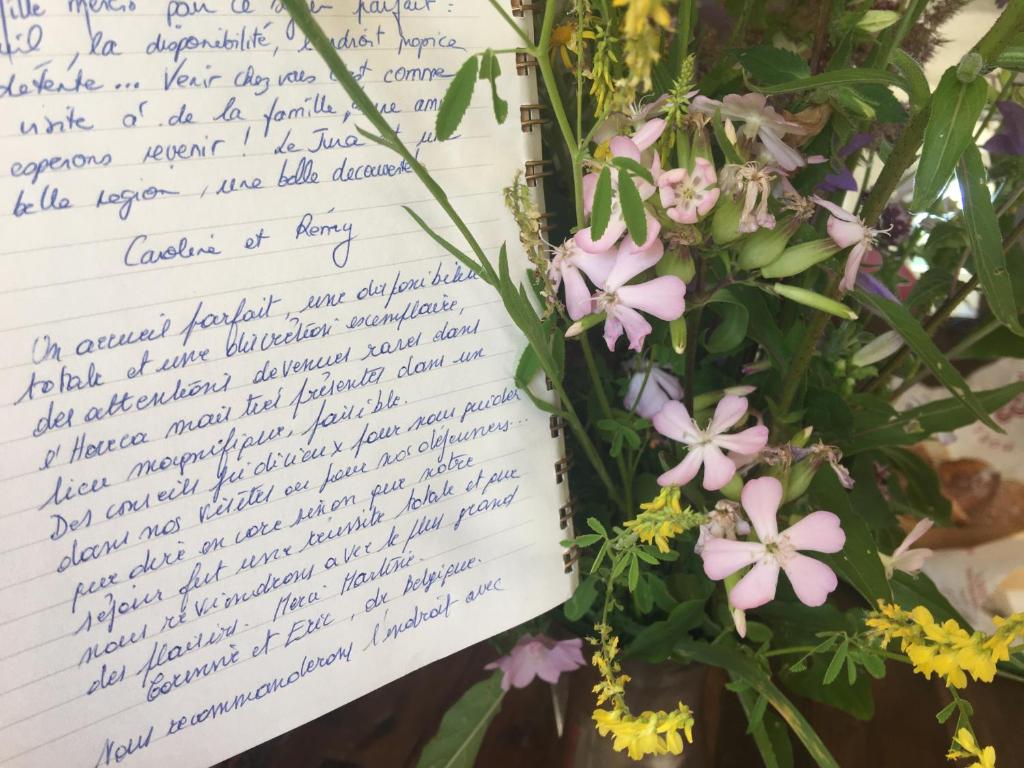 Mille mercis pour ce séjour parfait :
la disponibilité, l'endroit propice
détente... Venir chez vous c'est comme
visite à de la famille, une ami
esperons revenir ! Le Jura est une
belle region, une belle decouverte
Caroline et Rémy
Un accueil parfait, une disponibilité
totale et une discrétion exemplaire,
des attentions devenues rares dans
l'Horeca mais très présentes dans un
lieu magnifique, paisible.
Des conseils judicieux pour nous guider
dans nos visites ou pour nos déjeuners...
que dire encore sinon que notre
séjour fut une réussite totale et que
nous reviendrons avec le plus grand
des plaisirs. Merci Martine.
Corinne et Eric, de Belgique.
Nous recommanderons l'endroit avec